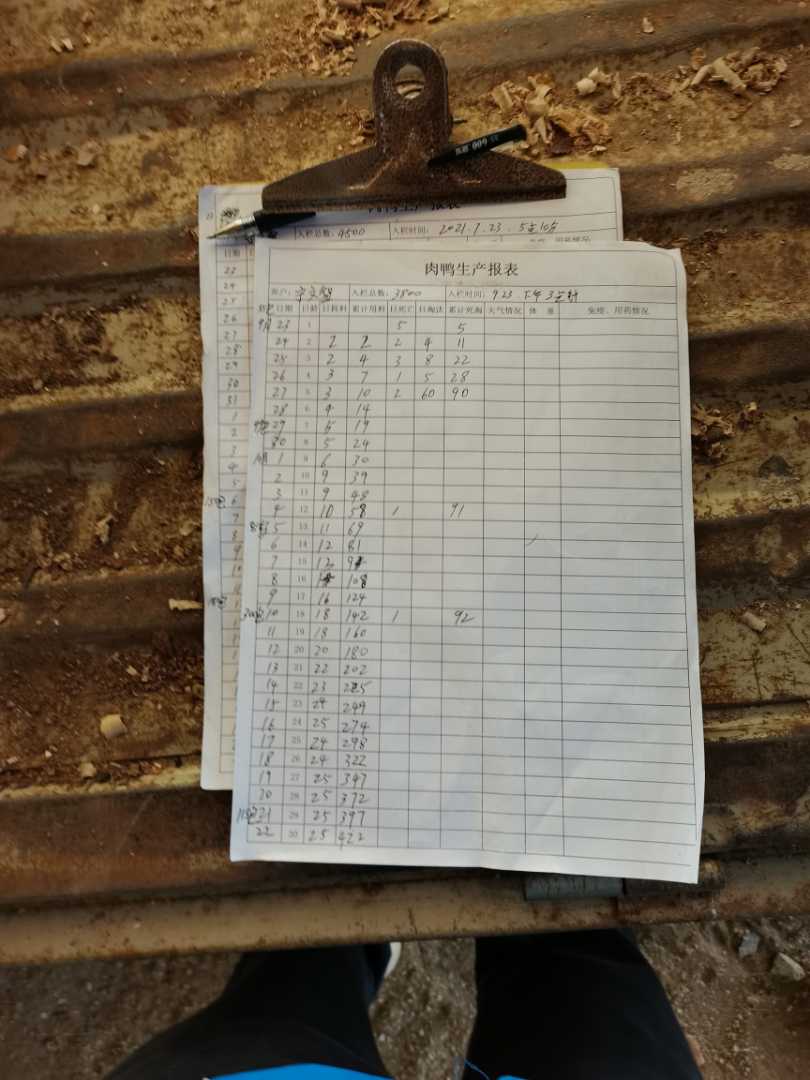 009
入栏总数：4500 入栏时间：2021.7.23.
日期
23
24
25
26
27
28
29
30
31
1
2
3
4
5
6
7
8
9
10
肉鸭生产报表
入栏总数：3800 入栏时间：9 23 . 下午3
日期 日龄 日耗料 累计用料 日死亡 日淘汰 累计死淘 天气情况 体 重 免疫、用药情况
9月 23 1 5 5
24 2 2 2 2 4 11
25 3 2 4 3 8 22
26 4 3 7 1 5 28
27 5 3 10 2 60 90
28 6 4 14
29 7 5 19
30 8 5 24
1 9 6 30
2 10 9 39
3 11 9 48
4 12 10 58 1 91
5 13 11 69
6 14 12 81
7 15 13 94
8 16 14 108
9 17 16 124
10 18 18 142 1 92
11 19 18 160
12 20 20 180
13 21 22 202
14 22 23 225
15 23 24 249
16 24 25 274
17 25 24 298
18 26 24 322
19 27 25 347
30 28 25 372
21 29 25 397
22 30 25 422